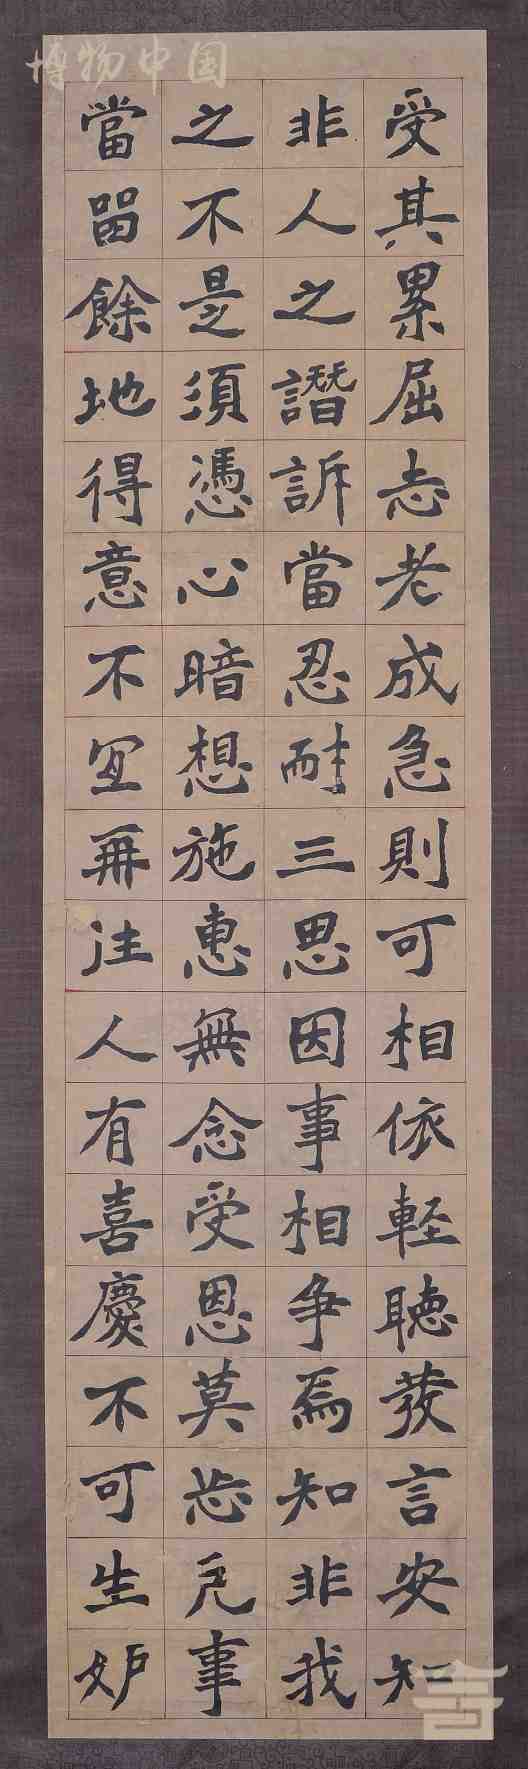 博物中国
受其累屈志老成急則可相依輕聽發言安知
非人之譖訴當忍耐三思因事相爭焉知非我
之不是須憑心暗想施惠無念受恩莫忘凡事
當留餘地得意不宜再往人有喜慶不可生妒